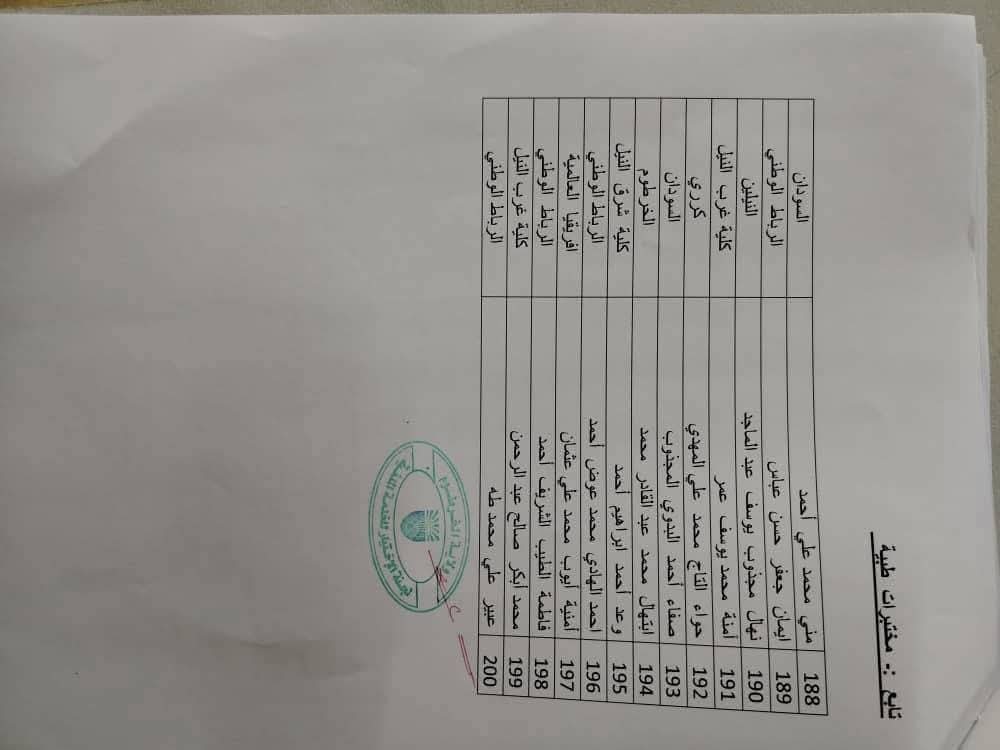 تابع :- مختبرات طبية
188 منى محمد علي أحمد السودان
189 ايمان جعفر حسن عباس الرباط الوطني
190 نهال مجذوب يوسف عبد الماجد النيلين
191 آمنة محمد يوسف عمر كلية غرب النيل
192 حواء التاج محمد علي المهدي كرري
193 صفاء أحمد البدوي المجذوب السودان
194 ابتهال محمد عبد القادر محمد الخرطوم
195 وعد أحمد ابراهيم أحمد كلية شرق النيل
196 احمد الهادي محمد عوض أحمد الرباط الوطني
197 أمنية أيوب محمد علي عثمان افريقيا العالمية
198 فاطمة الطيب الشريف أحمد الرباط الوطني
199 محمد أبكر صالح عبد الرحمن كلية غرب النيل
200 عبير علي محمد طه الرباط الوطني
ولاية الخرطوم
لجنة الإختيار للخدمة المدنية